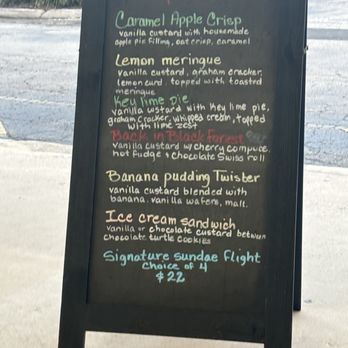 Caramel Apple Crisp
vanilla custard with housemade
apple pie filling, oat crisp, caramel
Lemon meringue
vanilla custard, graham cracker,
lemon curd, topped with toasted
meringue
Key lime pie
vanilla custard with key lime pie,
graham cracker, whipped cream, topped
with lime zest
Back in Black Forest
vanilla custard w/ cherry compote,
hot fudge + chocolate Swiss roll
Banana pudding Twister
vanilla custard blended with
banana, vanilla wafers, malt.
Ice cream sandwich
vanilla or chocolate custard between
chocolate turtle cookies
Signature sundae Flight
choice of 4
$22